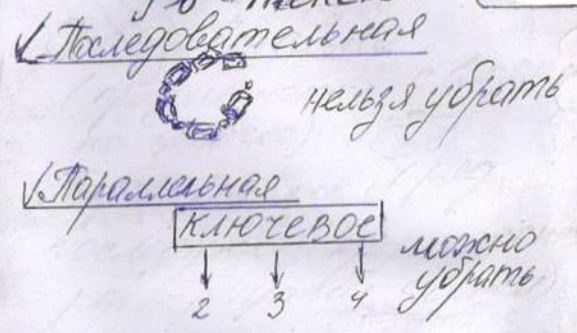 Последовательная
нельзя убрать
Параллельная
ключевое
можно
убрать
2 3 4